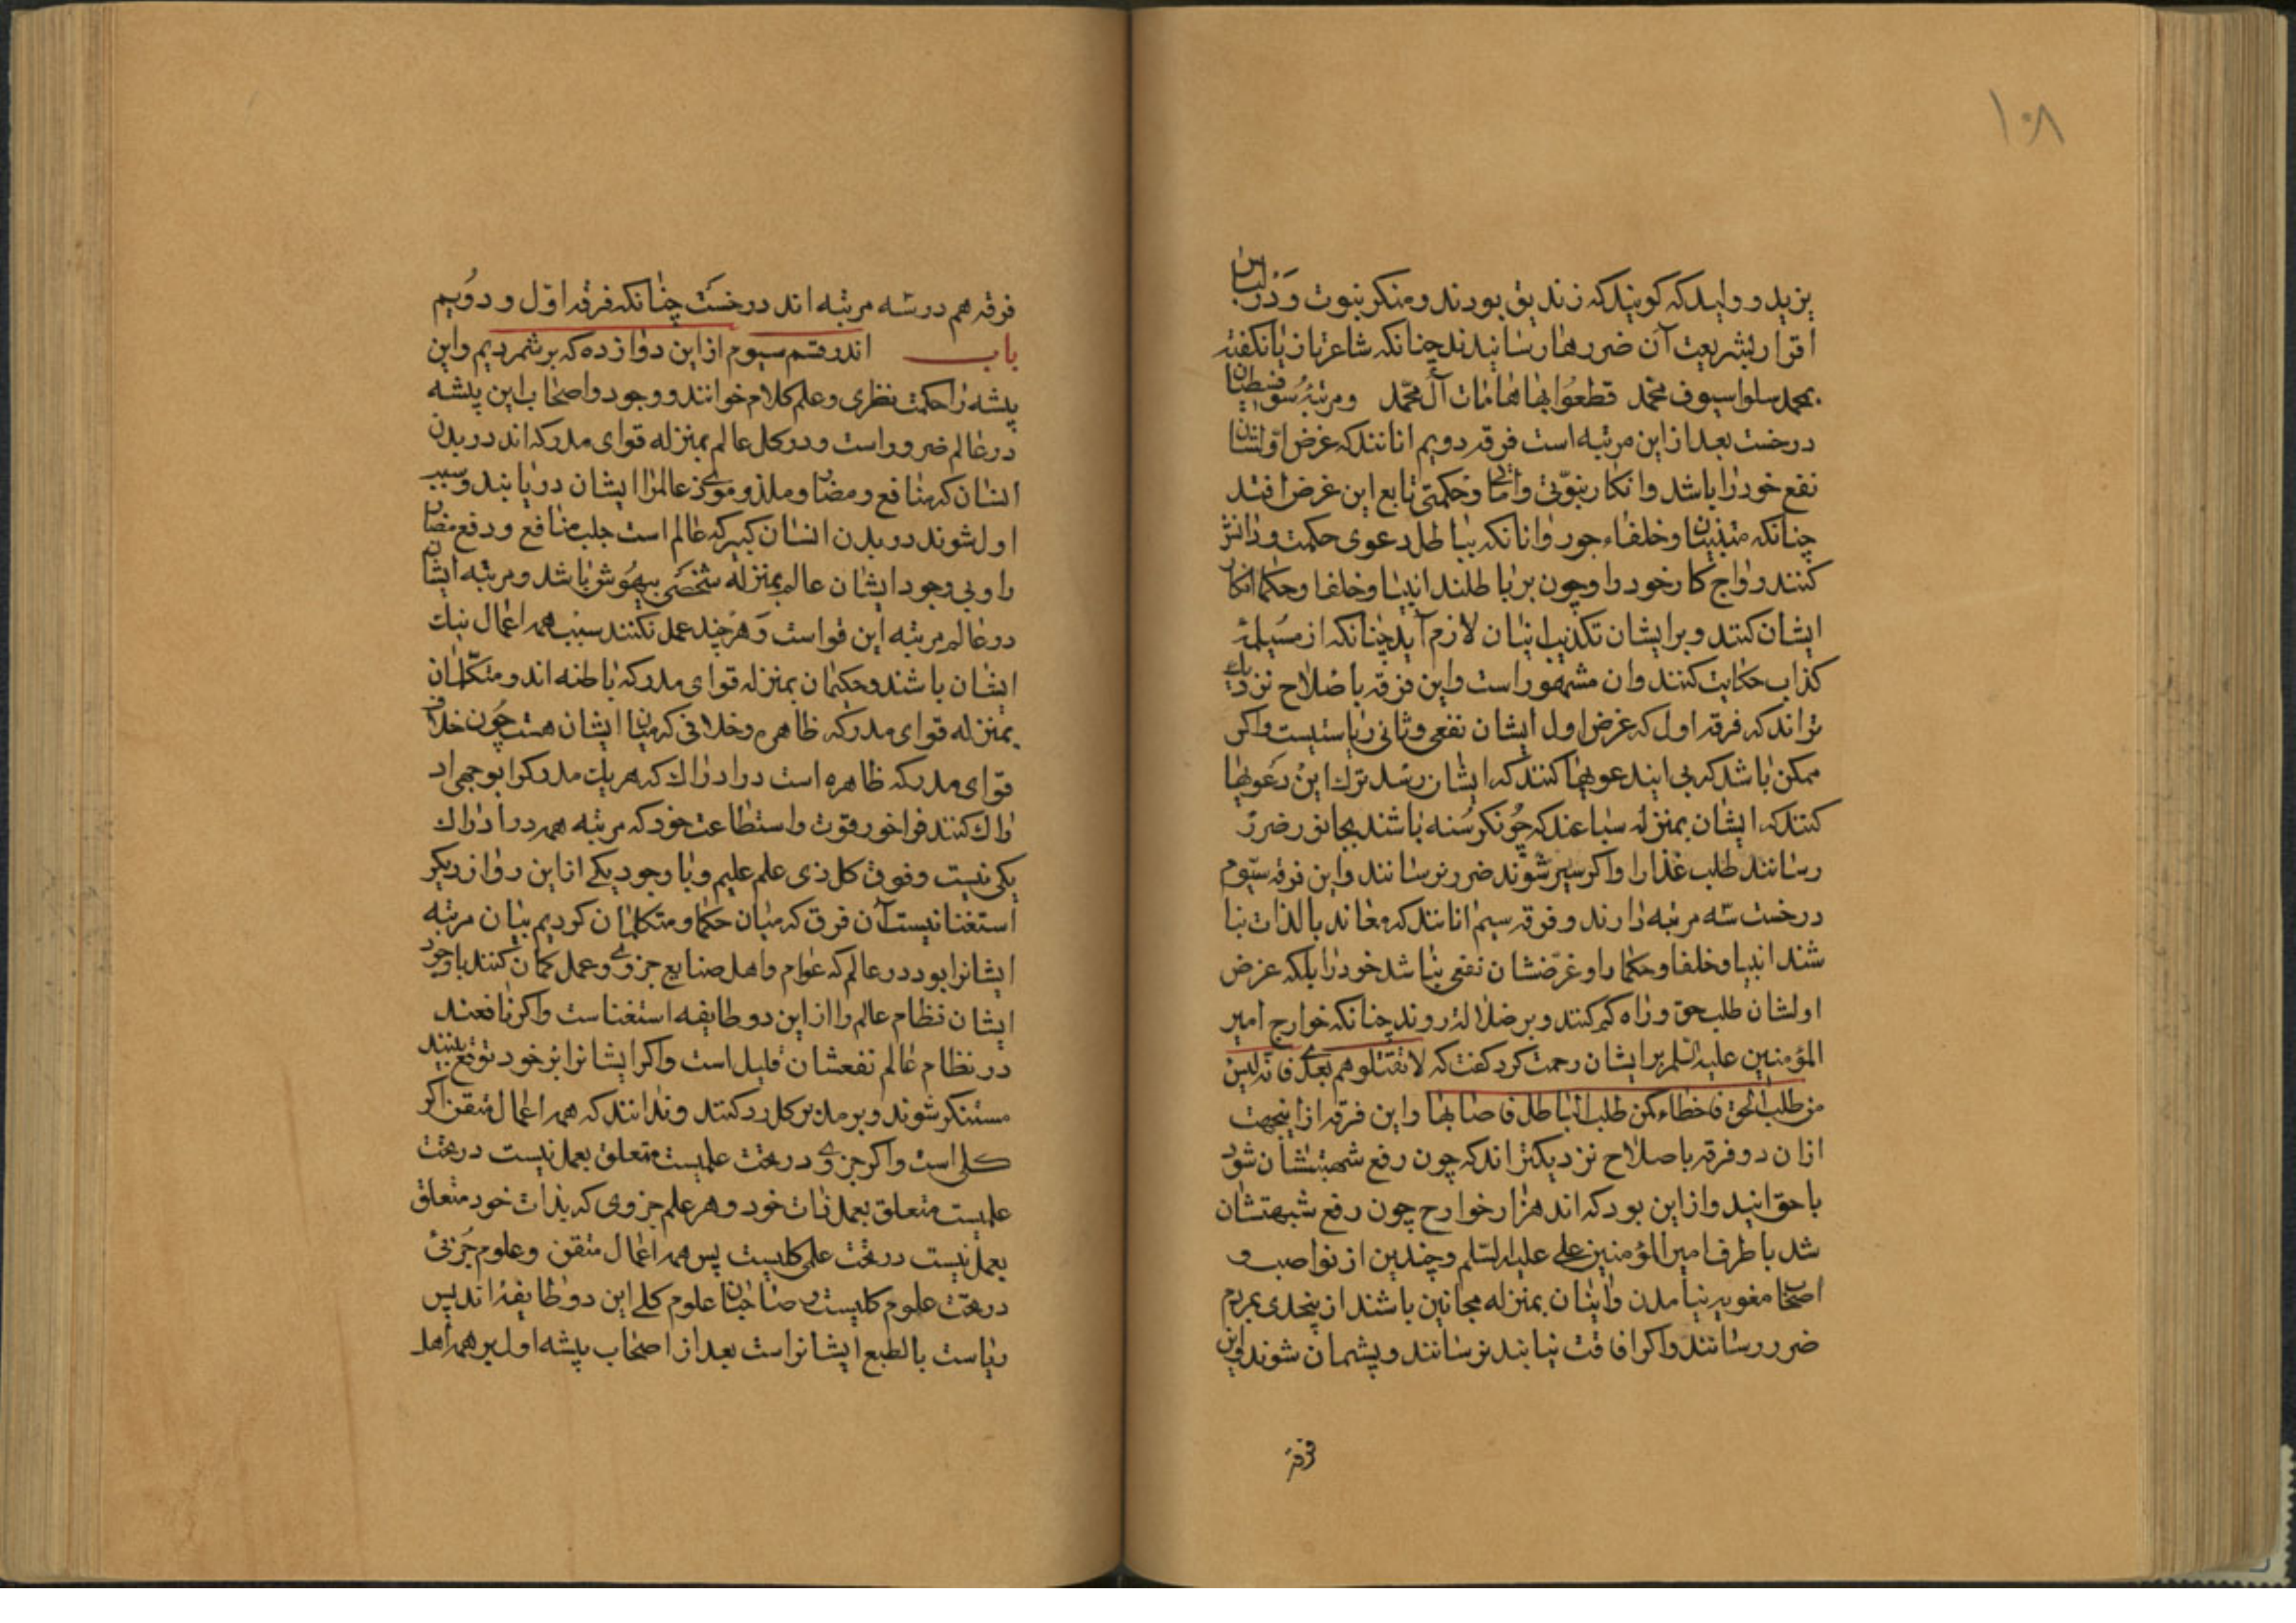 ١٠٨
یزید و ولید که کویند که زندیق بودند و منکر نبوت و در لباس
اقرار بشریعت آن ضررها رسانیدند چنانکه شاعر بازیانکفته
بمحمد سلوا سیوف محمد قطعوا بها هامات آل محمد ومرتبهٔ سوفسطائیان
درخست بعد از این مرتبه است فرقه دویم انانند که غرض اولشان
نفع خود را باشد وانکار نبوّتی و وحکمتی تابع این غرض افتد
چنانکه متنبیان وخلفاء جور وانانکه بباطل دعوی حکمت ودانش
کنند رواج کار خود را وچون بر باطلند انبیا وخلفا وحکما انکار
ایشان کنند و بر ایشان تکذیب اینان لازم آید چنانکه از مسیلمهٔ
کذاب حکایت کنند وان مشهور است واین فرقه باصلاح نزدیک
تراند که فرقه اول که غرض اول ایشان نفعی وثانی ریاستیست واکر
ممکن باشد که بی ایند عویها کنند که ایشان رسد ترک این دعویها
کنند که ایشان بمنزله سباعند که چونکرسنه باشند بجانور ضرر
رسانند طلب غذا را واکر سیر شوند ضرر نرسانند واین فرقه سیّوم
درخست سه مرتبه دارند وفرقه سیم انانند که معاند بالذات نبا
شند انبیا وخلفا وحکما را وغرّضشان نفعی نباشد خود را بلکه غرض
اولشان طلب حق و راه کم کنند و بر ضلالة روند چنانکه خوارج امیر
المؤمنین علیه السلم بر ایشان رحمت کرد کفت که لا تقتلوهم بعدی فانه لیس
من طلب الحق فاخطاء کمن طلب الباطل فاصابها واین فرقه از اینجهت
ازان دو فرقه باصلاح نزدیکتراند که چون رفع شبهتشان شود
باحق ایند واز این بود که اند هزار خوارج چون رفع شبهتشان
شد باطرف امیر المؤمنین علی علیه السّلم وچندین از نواصب و
اصحاب مغویه نیامدن وایشان بمنزله مجانین باشند از بیخدی بمردم
ضرر رسانند واکر افاقت نیابند نرسانند و پشیمان شوند واین
فرقهٔ
فرقه هم در سه مرتبه اند درخسّت چنانکه فرقه اوّل و دوُیم
باب اندر قسم سیوم از این دوازده که بر شمردیم واین
پیشه را حکمت نظری وعلم کلام خوانند و وجود واصحاب این پیشه
در عالم ضرور است ودر کل عالم بمنزله قوای مدرکه اند در بدن
انسان که منافع ومضار وملذ وموذی عالمرا ایشان دریابند وسبب
اول شوند در بدن انسان کبیر که عالم است جلب منافع ودفع مضار
را وبی وجود ایشان عالم بمنزله شخصی بیهوش باشد ومرتبه ایشان
در عالم مرتبه این قواست وهر چند عمل نکنند سبب همه اعمال نیک
ایشان باشند وحکیمان بمنزله قوای مدرکه باطنه اند ومتکلمان
بمنزله قوای مدرکه ظاهره وخلافی که میان ایشان هست چون خلاف
قوای مدرکه ظاهره است در ادراک که هر یک مدرکرا بوجهی اد
راک کنند فراخور قوت واستطاعت خود که مرتبه همه در ادراک
یکی نیست وفوق کل ذی علم علیم وبا وجود یکی از این دو از دیکر
استغنا نیست آن فرق که میان حکما ومتکلمان کردیم بیان مرتبه
ایشانرا بود در عالم که عوام واهل صنایع جزوی وعمل کمان کنند باوجود
ایشان نظام عالم را از این دو طایفه استغناست واکر نافعند
در نظام عالم نفعشان قلیل است واکر ایشانرا بر خود توقع بینند
مستنکر شوند وبر مدبر کل رد کنند وندانند که همه اعمال متقن اکر
کلی است واکر جزوی در تحت علمیست متعلق بعمل نیست در تحت
علمیست متعلق بعمل ذات خود وهر علم جزوی که بذات خود متعلق
بعمل نیست در تحت علمی کلیست پس همه اعمال متقن وعلوم جُزئی
در تحت علوم کلیست وصاحبان علوم کلی این دو طایفه اند پس
ریاست بالطبع ایشانراست بعد از اصحاب پیشه اول بر همه اهل